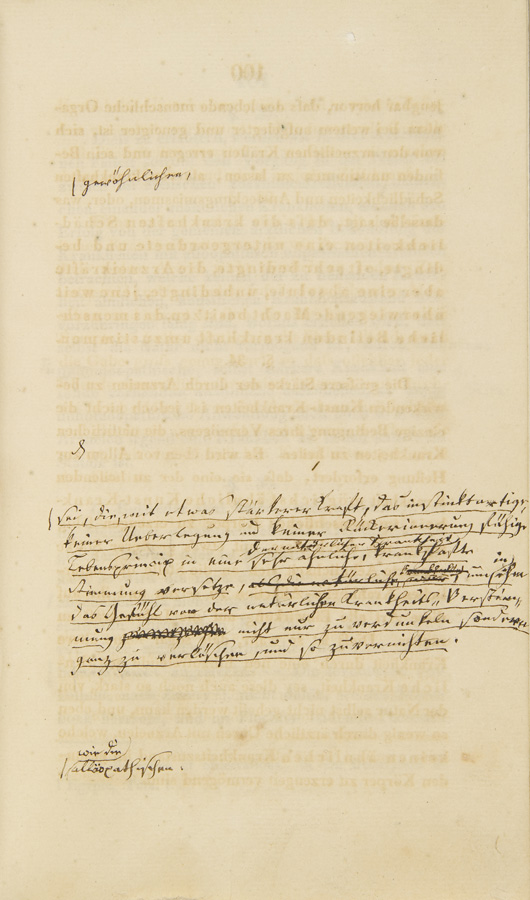 gewöhnlichen,
sei, die, mit etwas stärkerer Kraft, das instinktartige,
keiner Ueberlegung und keiner Rückerinnerung fähige
der natürlichen Krankheit
Lebensprincip in eine sehr ähnliche, krankhafte
Stimmung versetze, um in ihm
das Gefühl von der natürlichen Krankheits-Verstim-
mung nicht nur zu verdunkeln sondern
ganz zu verlöschen, und so zu vernichten.
wie die
allöopathischen.